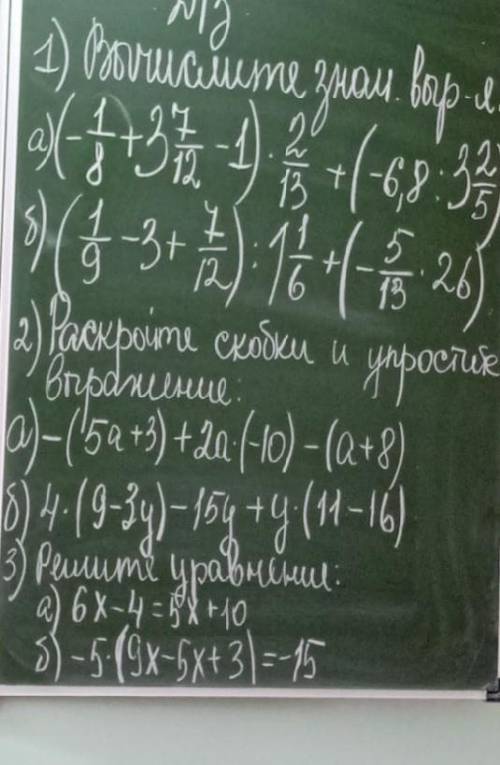 Д/З
1) Вычислите знач. выр-я
а) (-1/8 + 3 7/12 - 1) · 2/13 + (-6,8 : 3 2/5)
б) (1/9 - 3 + 7/12) : 1 1/6 + (-5/13 · 26)
2) Раскройте скобки и упростите
выражение:
а) -(5a+3)+2a·(-10)-(a+8)
б) 4·(9-3y)-15y+y·(11-16)
3) Решите уравнение:
а) 6x-4=5x+10
б) -5·(9x-5x+3)=-15